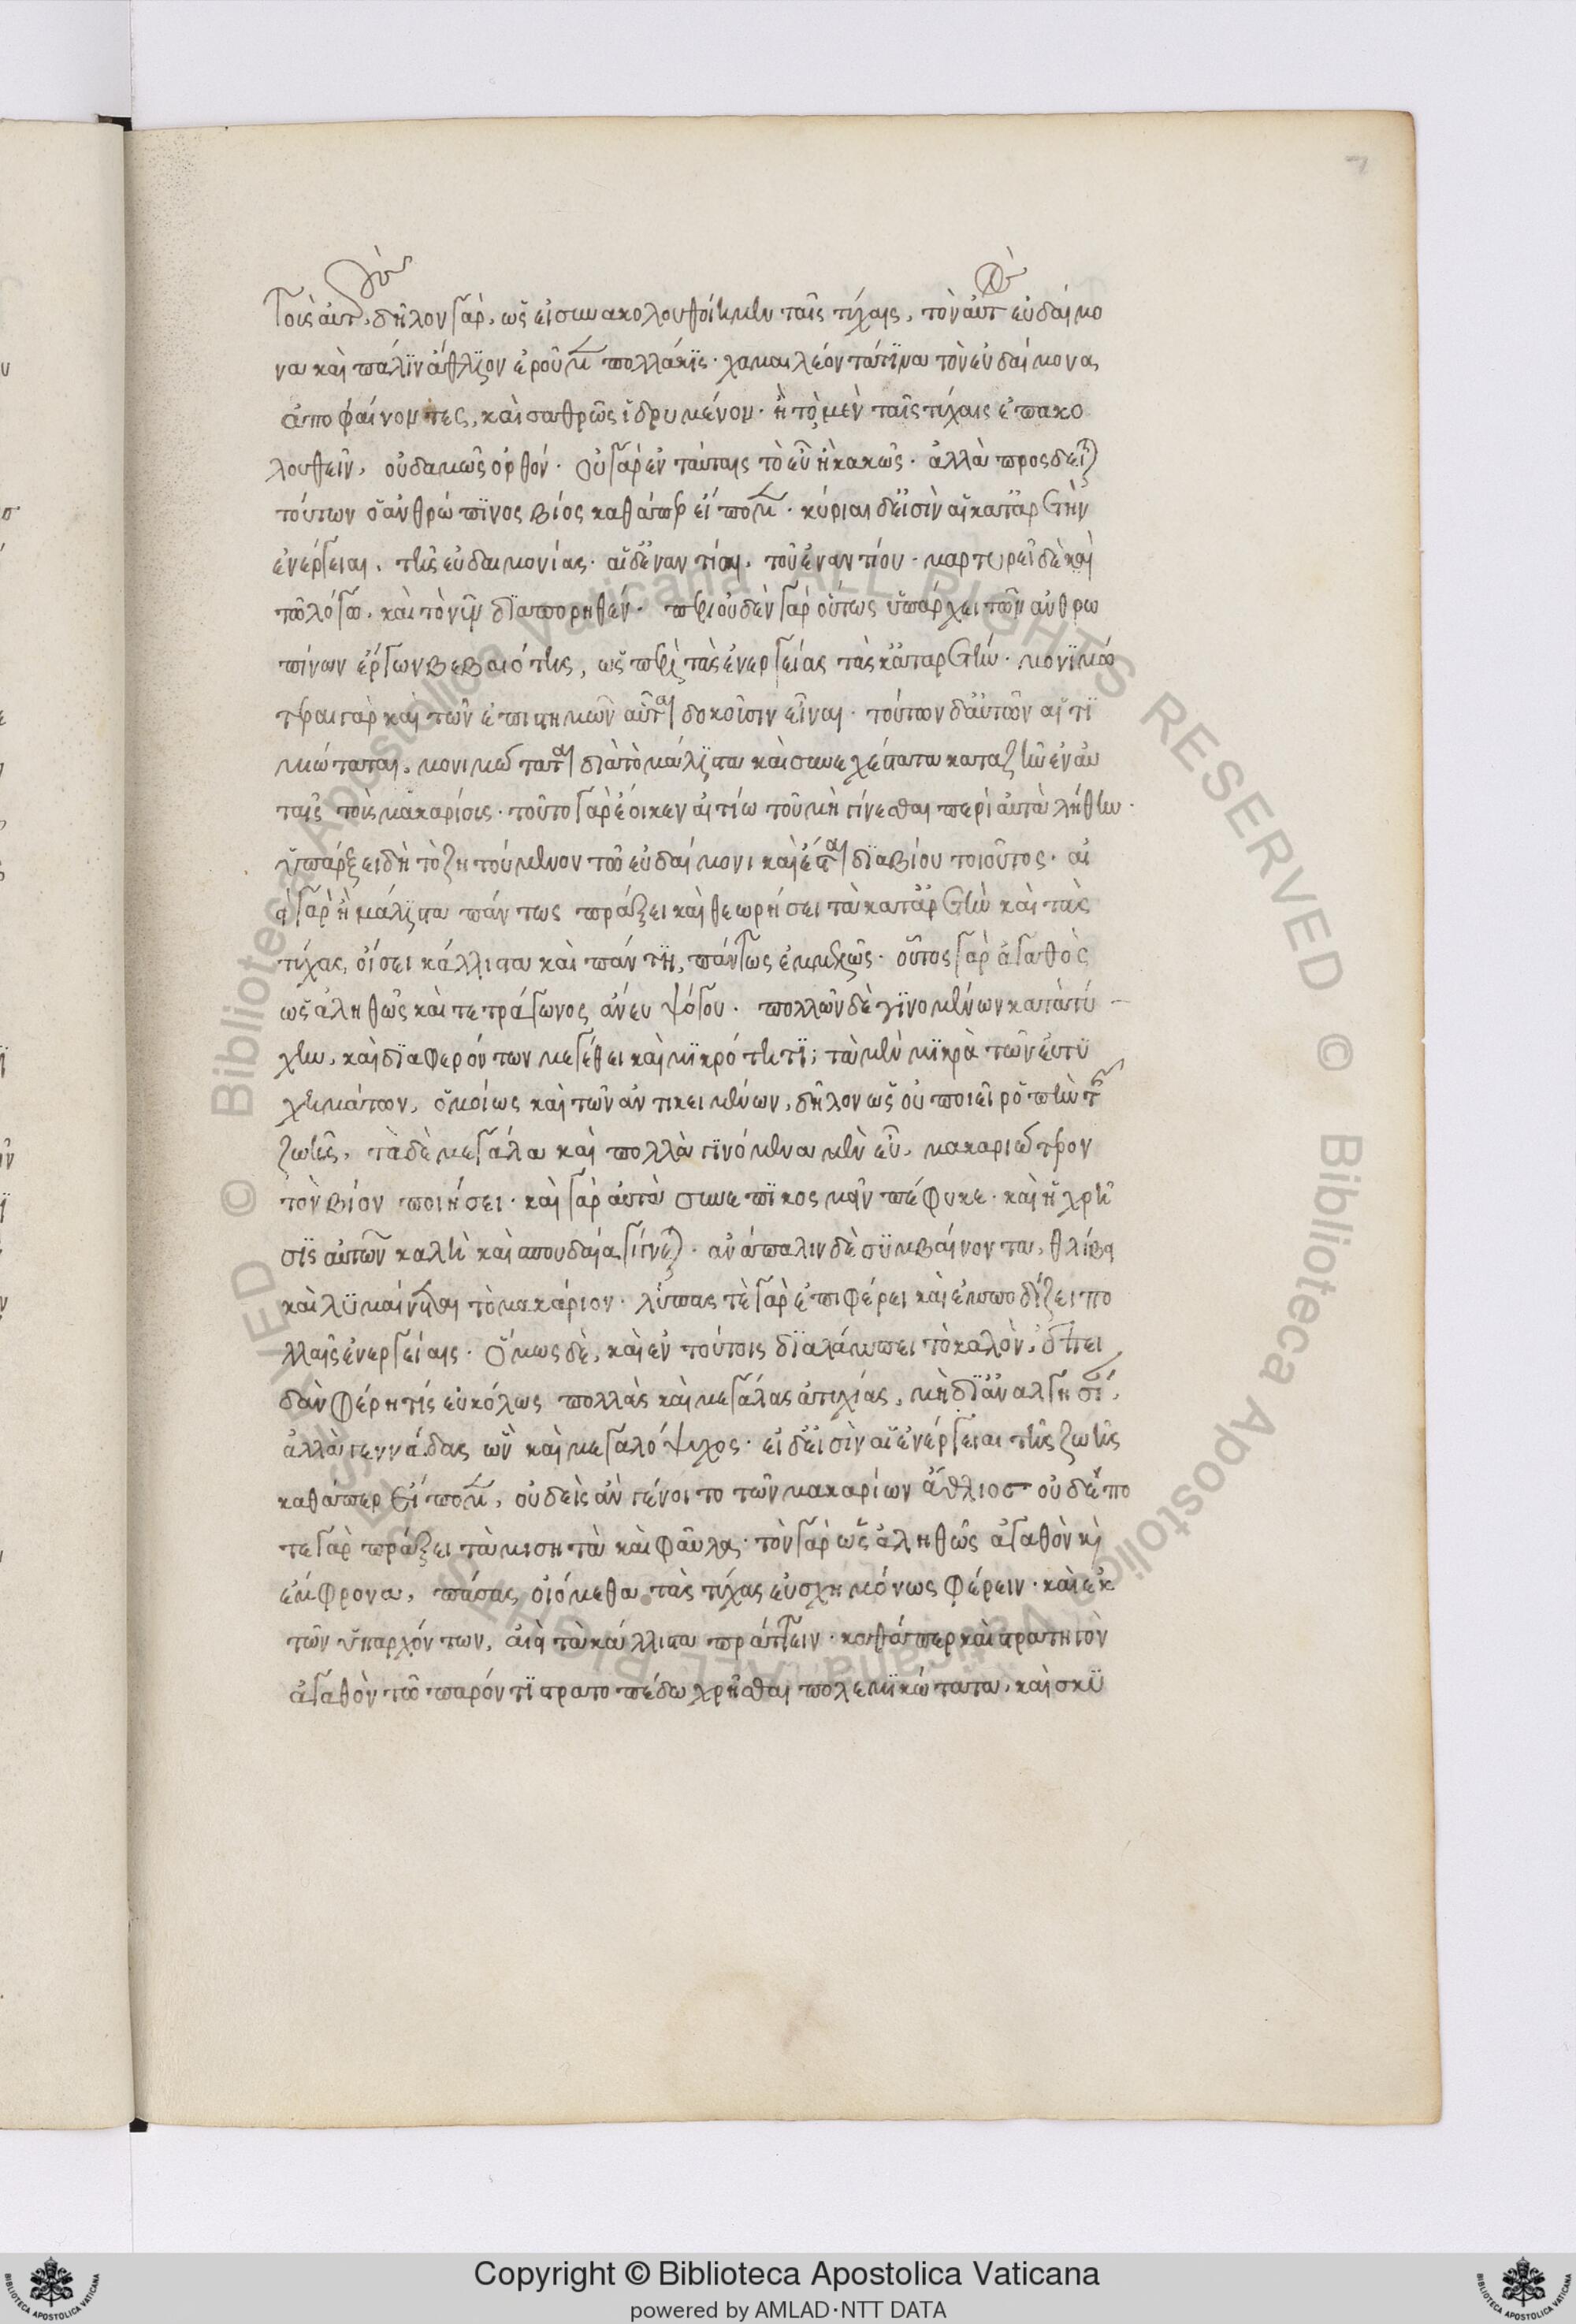 τοὺς αὐτούς. δῆλον γὰρ, ὡς εἰ συνακολουθοίημεν ταῖς τύχαις, τὸν αὐτὸν εὐδαίμο
να καὶ πάλιν ἄθλιον ἐροῦμεν πολλάκις· χαμαιλέοντά τινα τὸν εὐδαίμονα
ἀποφαίνοντες, καὶ σαθρῶς ἱδρυμένον· ἢ τὸ μὲν ταῖς τύχαις ἐπακο
λουθεῖν, οὐδαμῶς ὀρθόν· οὐ γὰρ ἐν ταύταις τὸ εὖ ἢ κακῶς· ἀλλὰ προσδεῖται
τούτων ὁ ἀνθρώπινος βίος καθάπερ εἴπομεν· κύριαι δ' εἰσὶν αἱ κατ' ἀρετὴν
ἐνέργειαι, τῆς εὐδαιμονίας· αἱ δ' ἐναντίαι, τοῦ ἐναντίου· μαρτυρεῖ δὲ καὶ
τῷ λόγῳ, καὶ τὸ νῦν διαπορηθέν· περὶ οὐδὲν γὰρ οὕτως ὑπάρχει τῶν ἀνθρω
πίνων ἔργων βεβαιότης, ὡς περὶ τὰς ἐνεργείας τὰς κατ' ἀρετήν· μονιμώ
τεραι γὰρ καὶ τῶν ἐπιστημῶν αὗται δοκοῦσιν εἶναι· τούτων δ' αὐτῶν αἱ τι
μώταται, μονιμώταται διὰ τὸ μάλιστα καὶ συνεχέστατα καταζῆν ἐν αὐ
ταῖς τοὺς μακαρίους· τοῦτο γὰρ ἔοικεν αἰτίῳ τοῦ μὴ γίνεσθαι περὶ αὐτὰ λήθην·
ὑπάρξει δὴ τὸ ζητούμενον τῷ εὐδαίμονι καὶ ἔσται διὰ βίου τοιοῦτος· αἰ
εὶ γὰρ ἢ μάλιστα πάντως πράξει καὶ θεωρήσει τὰ κατ' ἀρετὴν καὶ τὰς
τύχας, οἴσει κάλλιστα καὶ πάντῃ, πάντως ἐμμελῶς· οὗτος γὰρ ἀγαθὸς
ὡς ἀληθῶς καὶ τετράγωνος ἄνευ ψόγου· πολλῶν δὲ γινομένων κατὰ τύ
χην, καὶ διαφερόντων μεγέθει καὶ μικρότητι; τὰ μὲν μικρὰ τῶν εὐτυ
χημάτων, ὁμοίως καὶ τῶν ἀντικειμένων, δῆλον ὡς οὐ ποιεῖ ῥοπὴν τῆς
ζωῆς, τὰ δὲ μεγάλα καὶ πολλὰ γινόμενα μὲν εὖ, μακαριώτερον
τὸν βίον ποιήσει· καὶ γὰρ αὐτὰ συνεπικοσμεῖν πέφυκε· καὶ ἡ χρῆ
σις αὐτῶν καλὴ καὶ σπουδαία γίνεται· ἀνάπαλιν δὲ συμβαίνοντα, θλίβει
καὶ λυμαίνεται τὸ μακάριον· λύπας τὲ γὰρ ἐπιφέρει καὶ ἐμποδίζει πο
λλαῖς ἐνεργείαις· ὅμως δὲ, καὶ ἐν τούτοις διαλάμπει τὸ καλὸν, ἐπει
δὰν φέρῃ τίς εὐκόλως πολλὰς καὶ μεγάλας ἀτυχίας, μὴ δι' ἀναλγησίαν,
ἀλλὰ γεννάδας ὢν καὶ μεγαλόψυχος· εἰ δ' εἰσὶν αἱ ἐνέργειαι τῆς ζωῆς
καθάπερ εἴπομεν, οὐδεὶς ἂν γένοιτο τῶν μακαρίων ἄθλιος· οὐδέπο
τε γὰρ πράξει τὰ μισητὰ καὶ φαῦλα· τὸν γὰρ ὡς ἀληθῶς ἀγαθὸν καὶ
ἔμφρονα, πάσας οἰόμεθα τὰς τύχας εὐσχημόνως φέρειν· καὶ ἐκ
τῶν ὑπαρχόντων, ἀεὶ τὰ κάλλιστα πράττειν· καθάπερ καὶ στρατηγὸν
ἀγαθὸν τῷ παρόντι στρατοπέδῳ χρῆσθαι πολεμικώτατα, καὶ σκυ